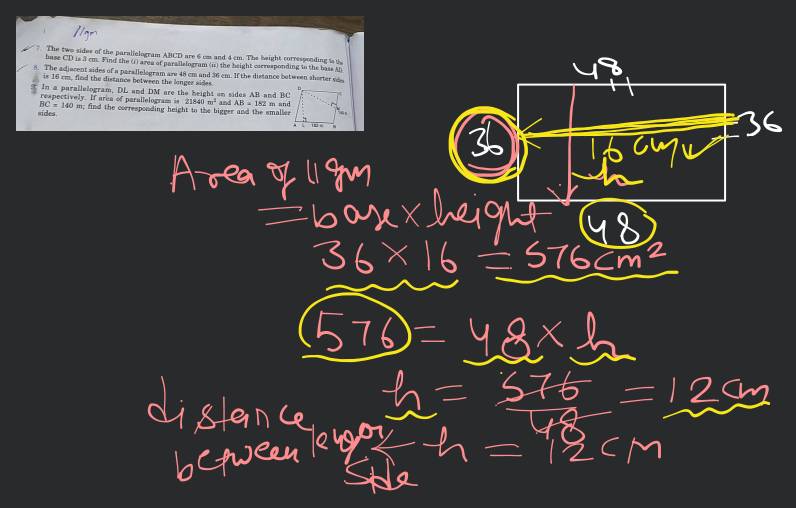 11gm
7. The two sides of the parallelogram ABCD are 6 cm and 4 cm. The height corresponding to the
base CD is 3 cm. Find the (i) area of parallelogram (ii) the height corresponding to the base AD.
8. The adjacent sides of a parallelogram are 48 cm and 36 cm. If the distance between shorter sides
is 16 cm, find the distance between the longer sides.
In a parallelogram, DL and DM are the height on sides AB and BC
respectively. If area of parallelogram is 21840 m² and AB = 182 m and
BC = 140 m; find the corresponding height to the bigger and the smaller
sides.
D
A L 182 m B
48
36
36
16 cm
h
48
Area of 11gm
= base × height
36 × 16 = 576 cm²
576 = 48 × h
h = 576/48 = 12 cm
distance
between longer ← h = 12 cm
side